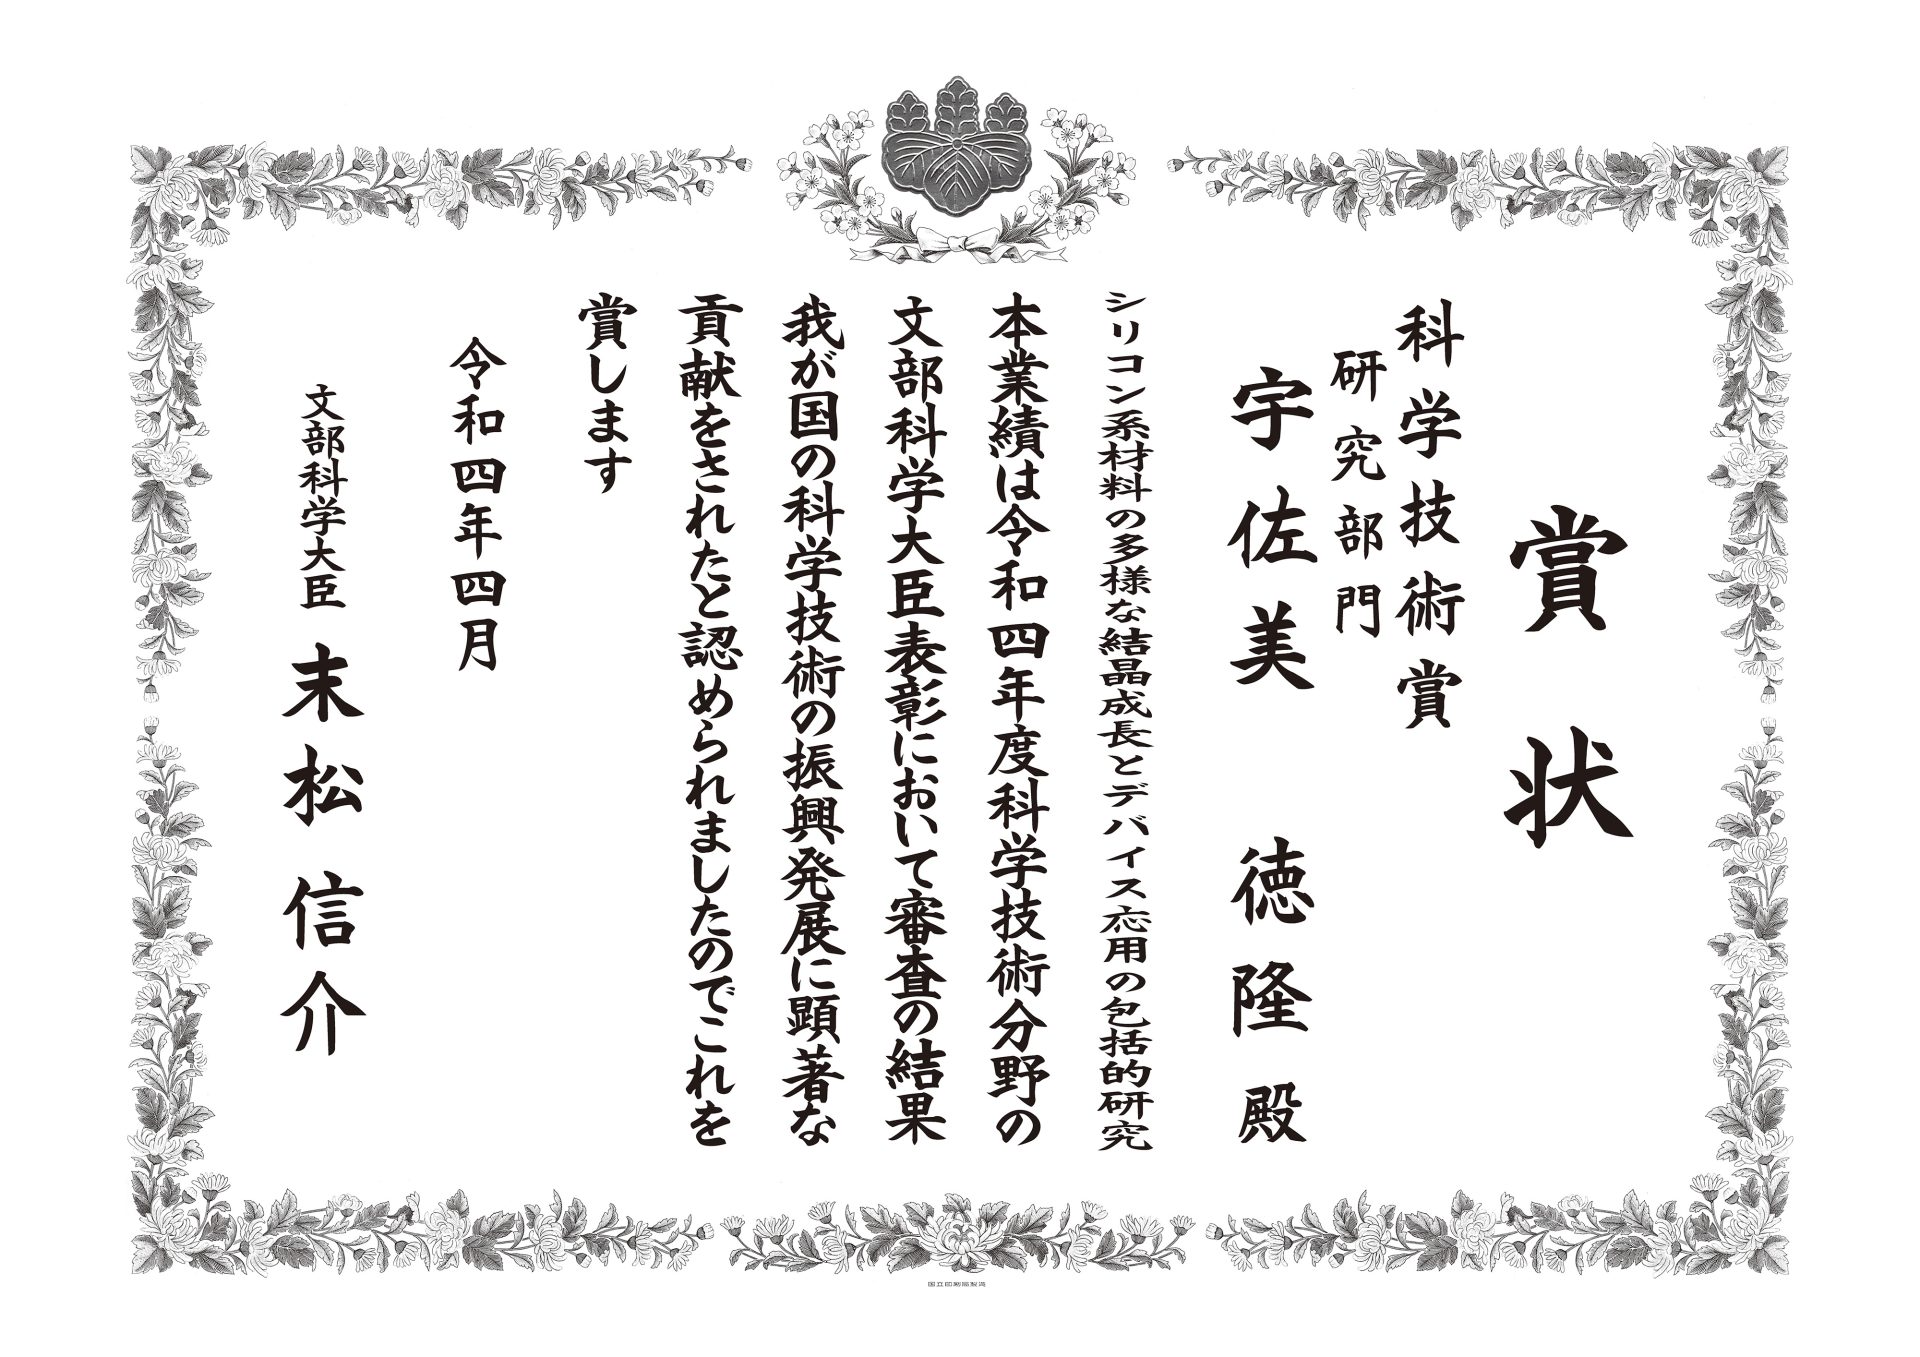 賞状
科学技術賞
研究部門
宇佐美 徳隆 殿
シリコン系材料の多様な結晶成長とデバイス応用の包括的研究
本業績は令和四年度科学技術分野の
文部科学大臣表彰において審査の結果
我が国の科学技術の振興発展に顕著な
貢献をされたと認められましたのでこれを
賞します
令和四年四月
文部科学大臣 末松信介
国立印刷局製造